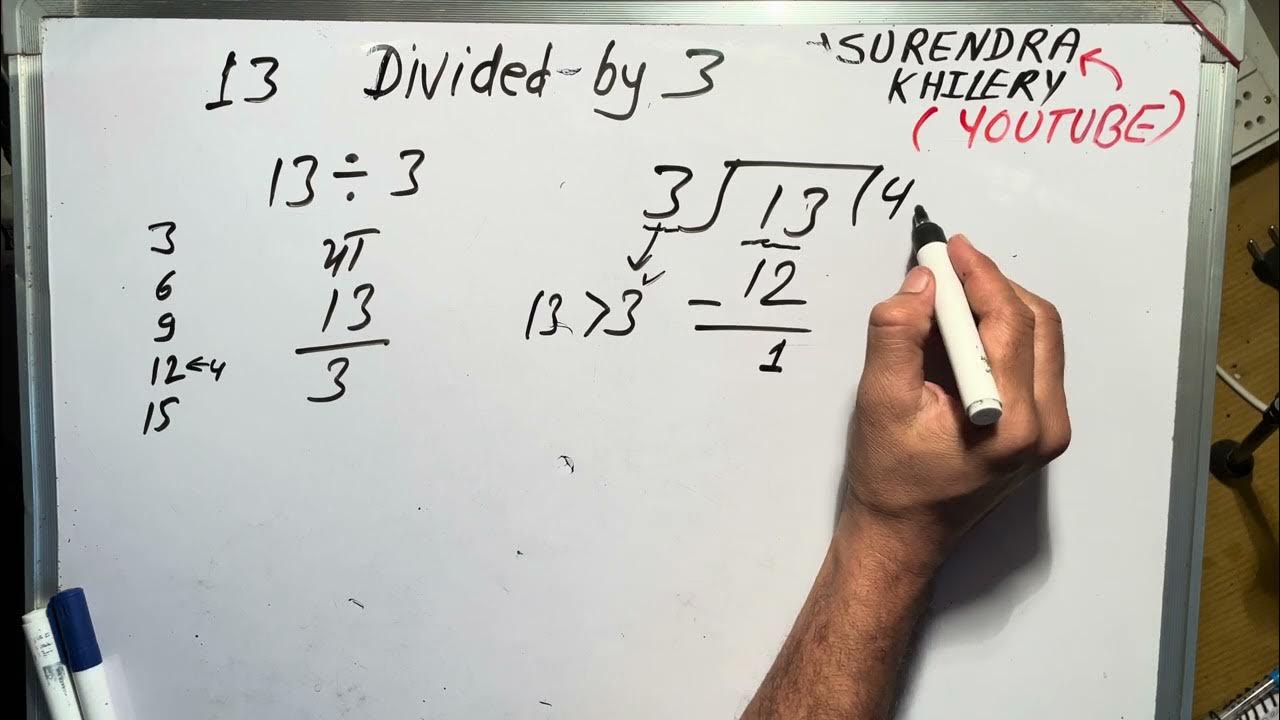 13 Divided-by 3
SURENDRA
KHILERY
(YOUTUBE)
13 ÷ 3
3
6
9
12 ← 4
15
13
3
3 13 (4
- 12
1
13 > 3